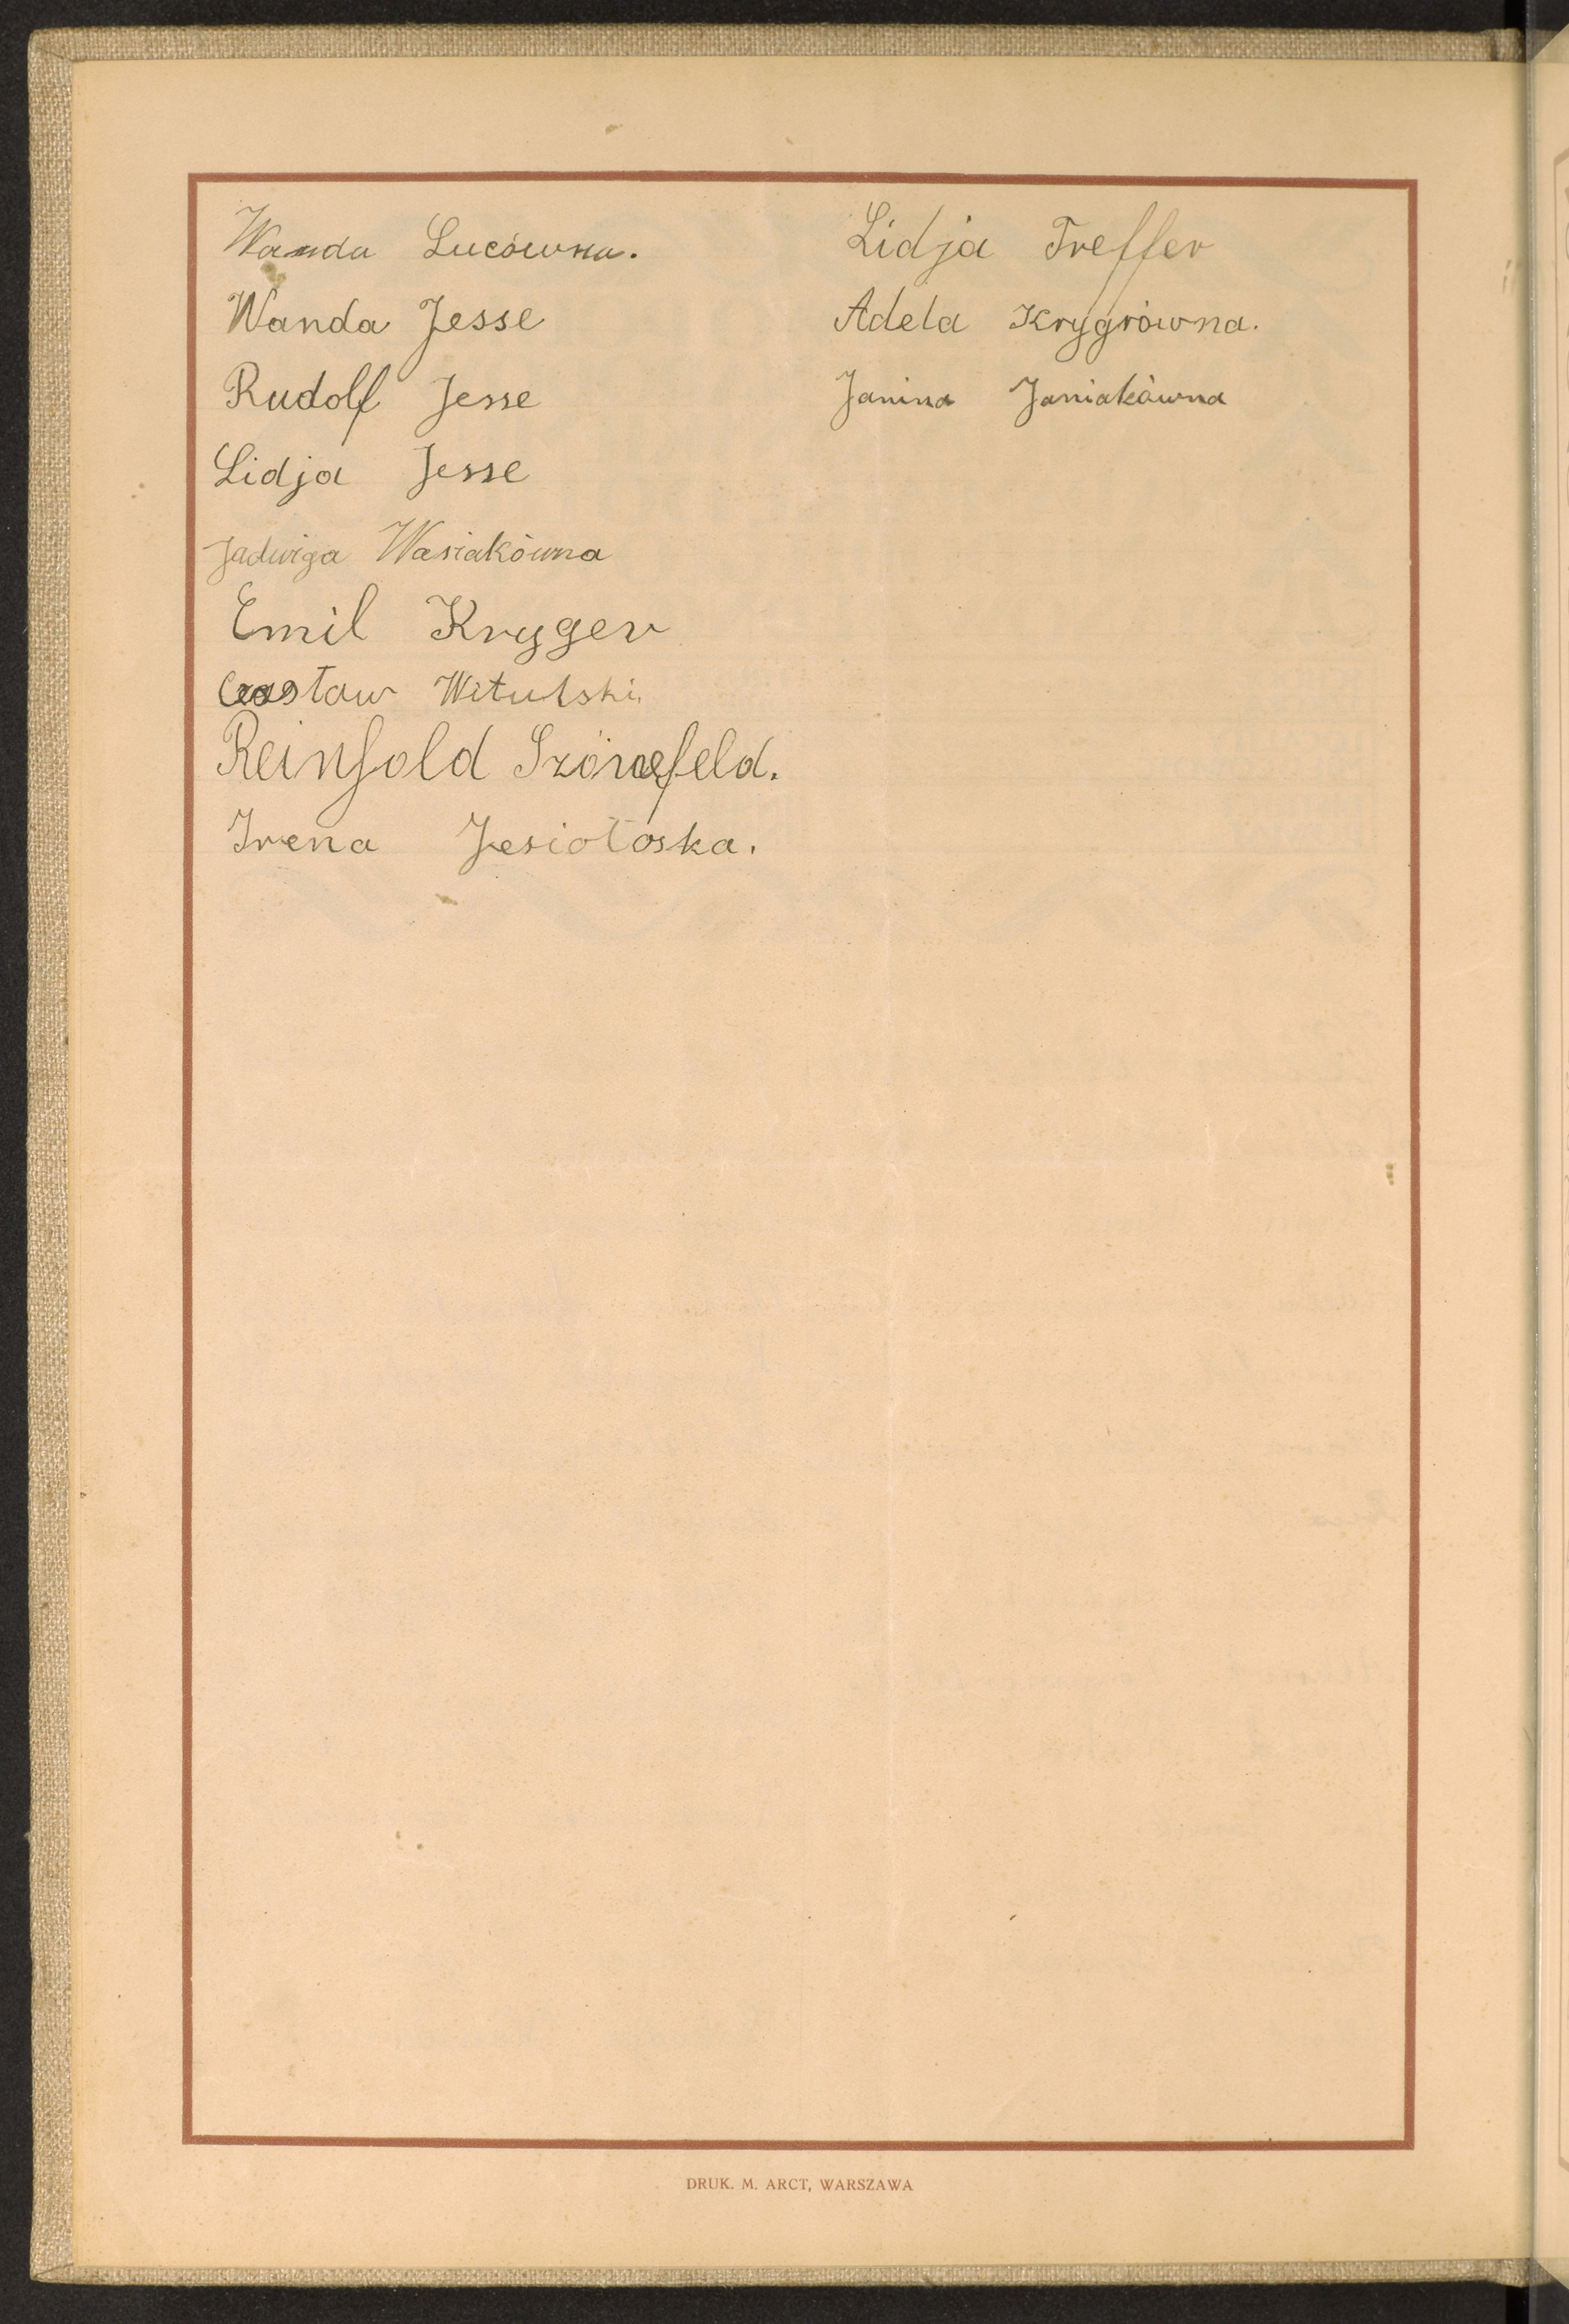 Wanda Lucówna.
Wanda Jesse
Rudolf Jesse
Lidja Jesse
Jadwiga Wasiakówna
Emil Kryger
Witulski
Reinhold Szönefeld.
Irena Jesiotoska.
Lidja Treffer
Adela Krygrówna.
Janina Janiakówna
DRUK. M. ARCT, WARSZAWA